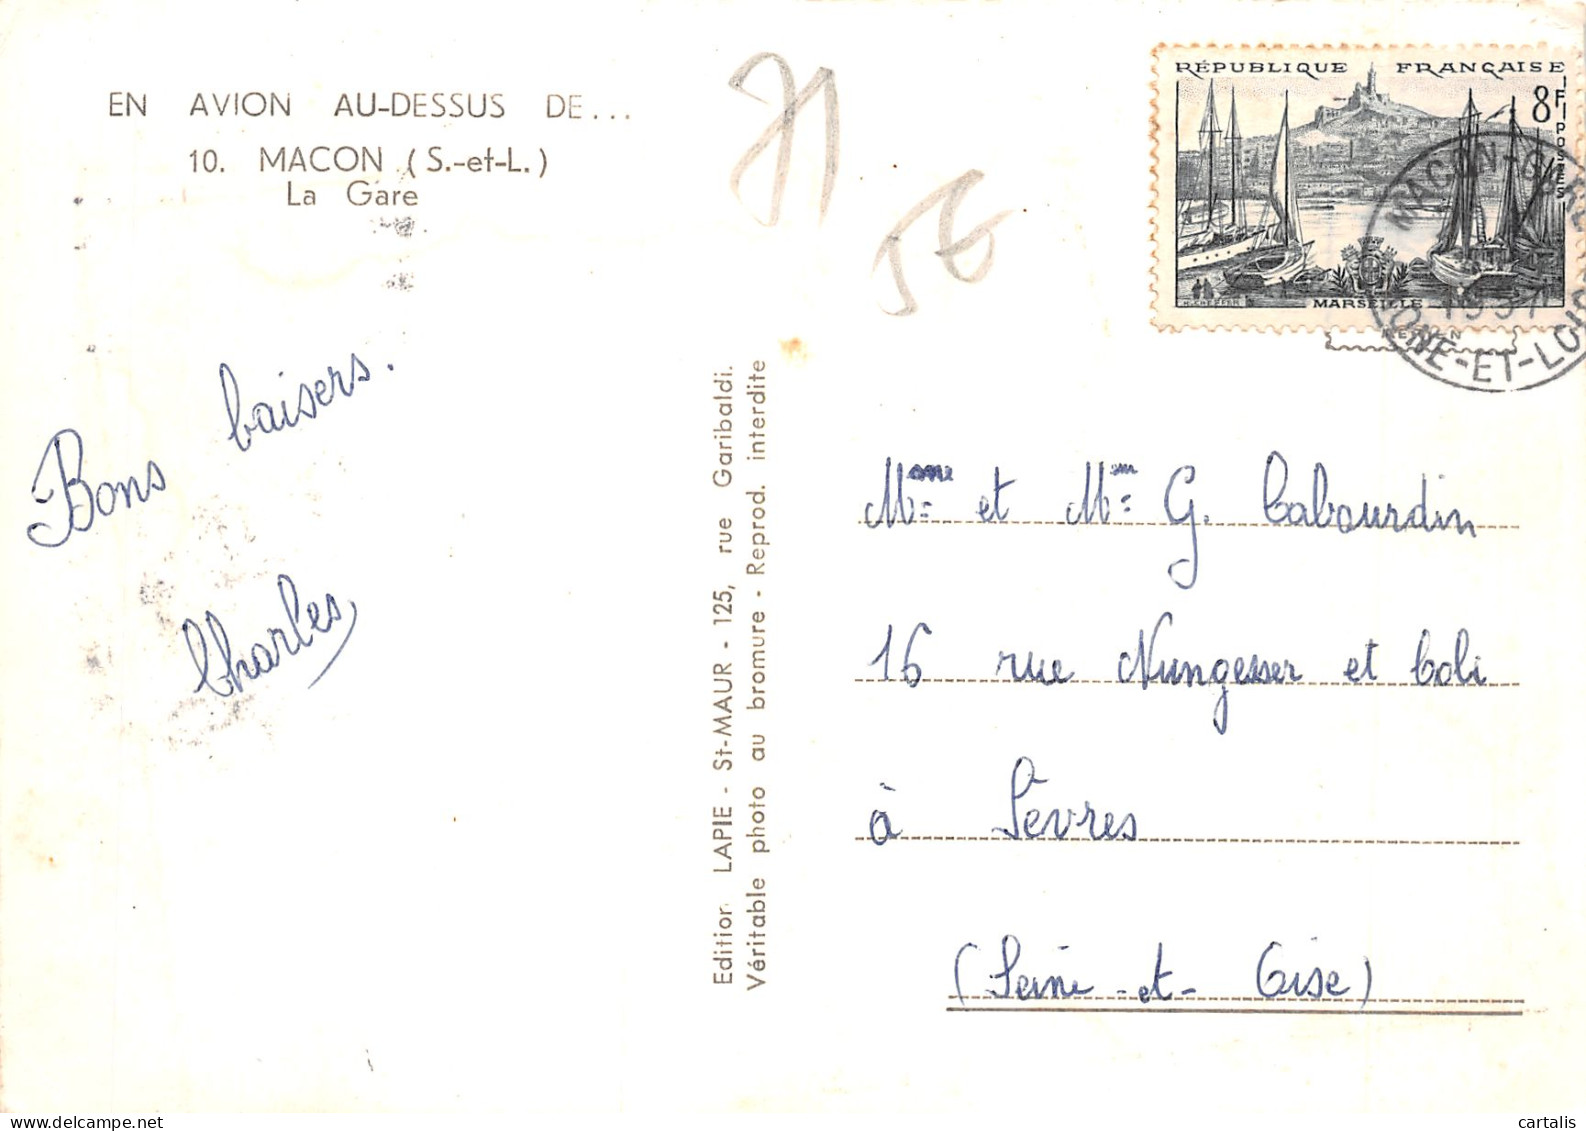 EN AVION AU-DESSUS DE...
10. MACON (S.-et-L.)
La Gare
71
56
RÉPUBLIQUE FRANÇAISE
8F
POSTES
MARSEILLE
MACON-GARE
1957
ONE-ET-LOI
Bons baisers.
Charles
Edition LAPIE - St-MAUR - 125, rue Garibaldi.
Véritable photo au bromure - Reprod. interdite
Mme et Mme G. Cabourdin
16 rue Nungesser et Coli
à Sèvres
(Seine-et-Oise)
cartalis